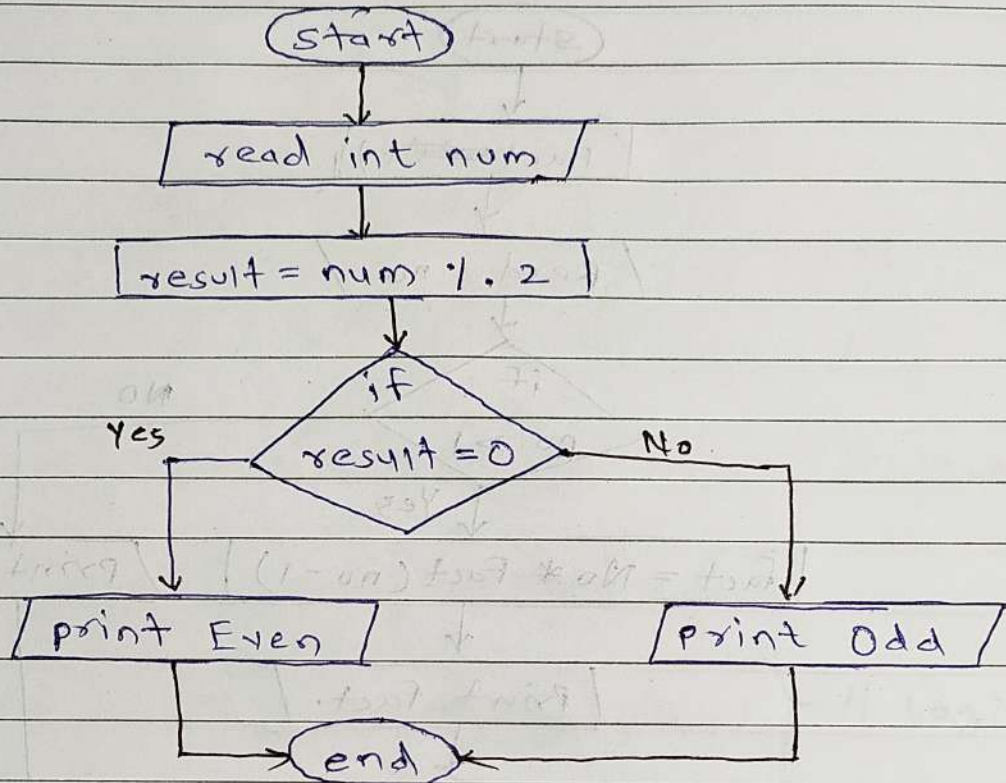 start
read int num
result = num %. 2
if
Yes
result = 0
No
print Even
print Odd
end